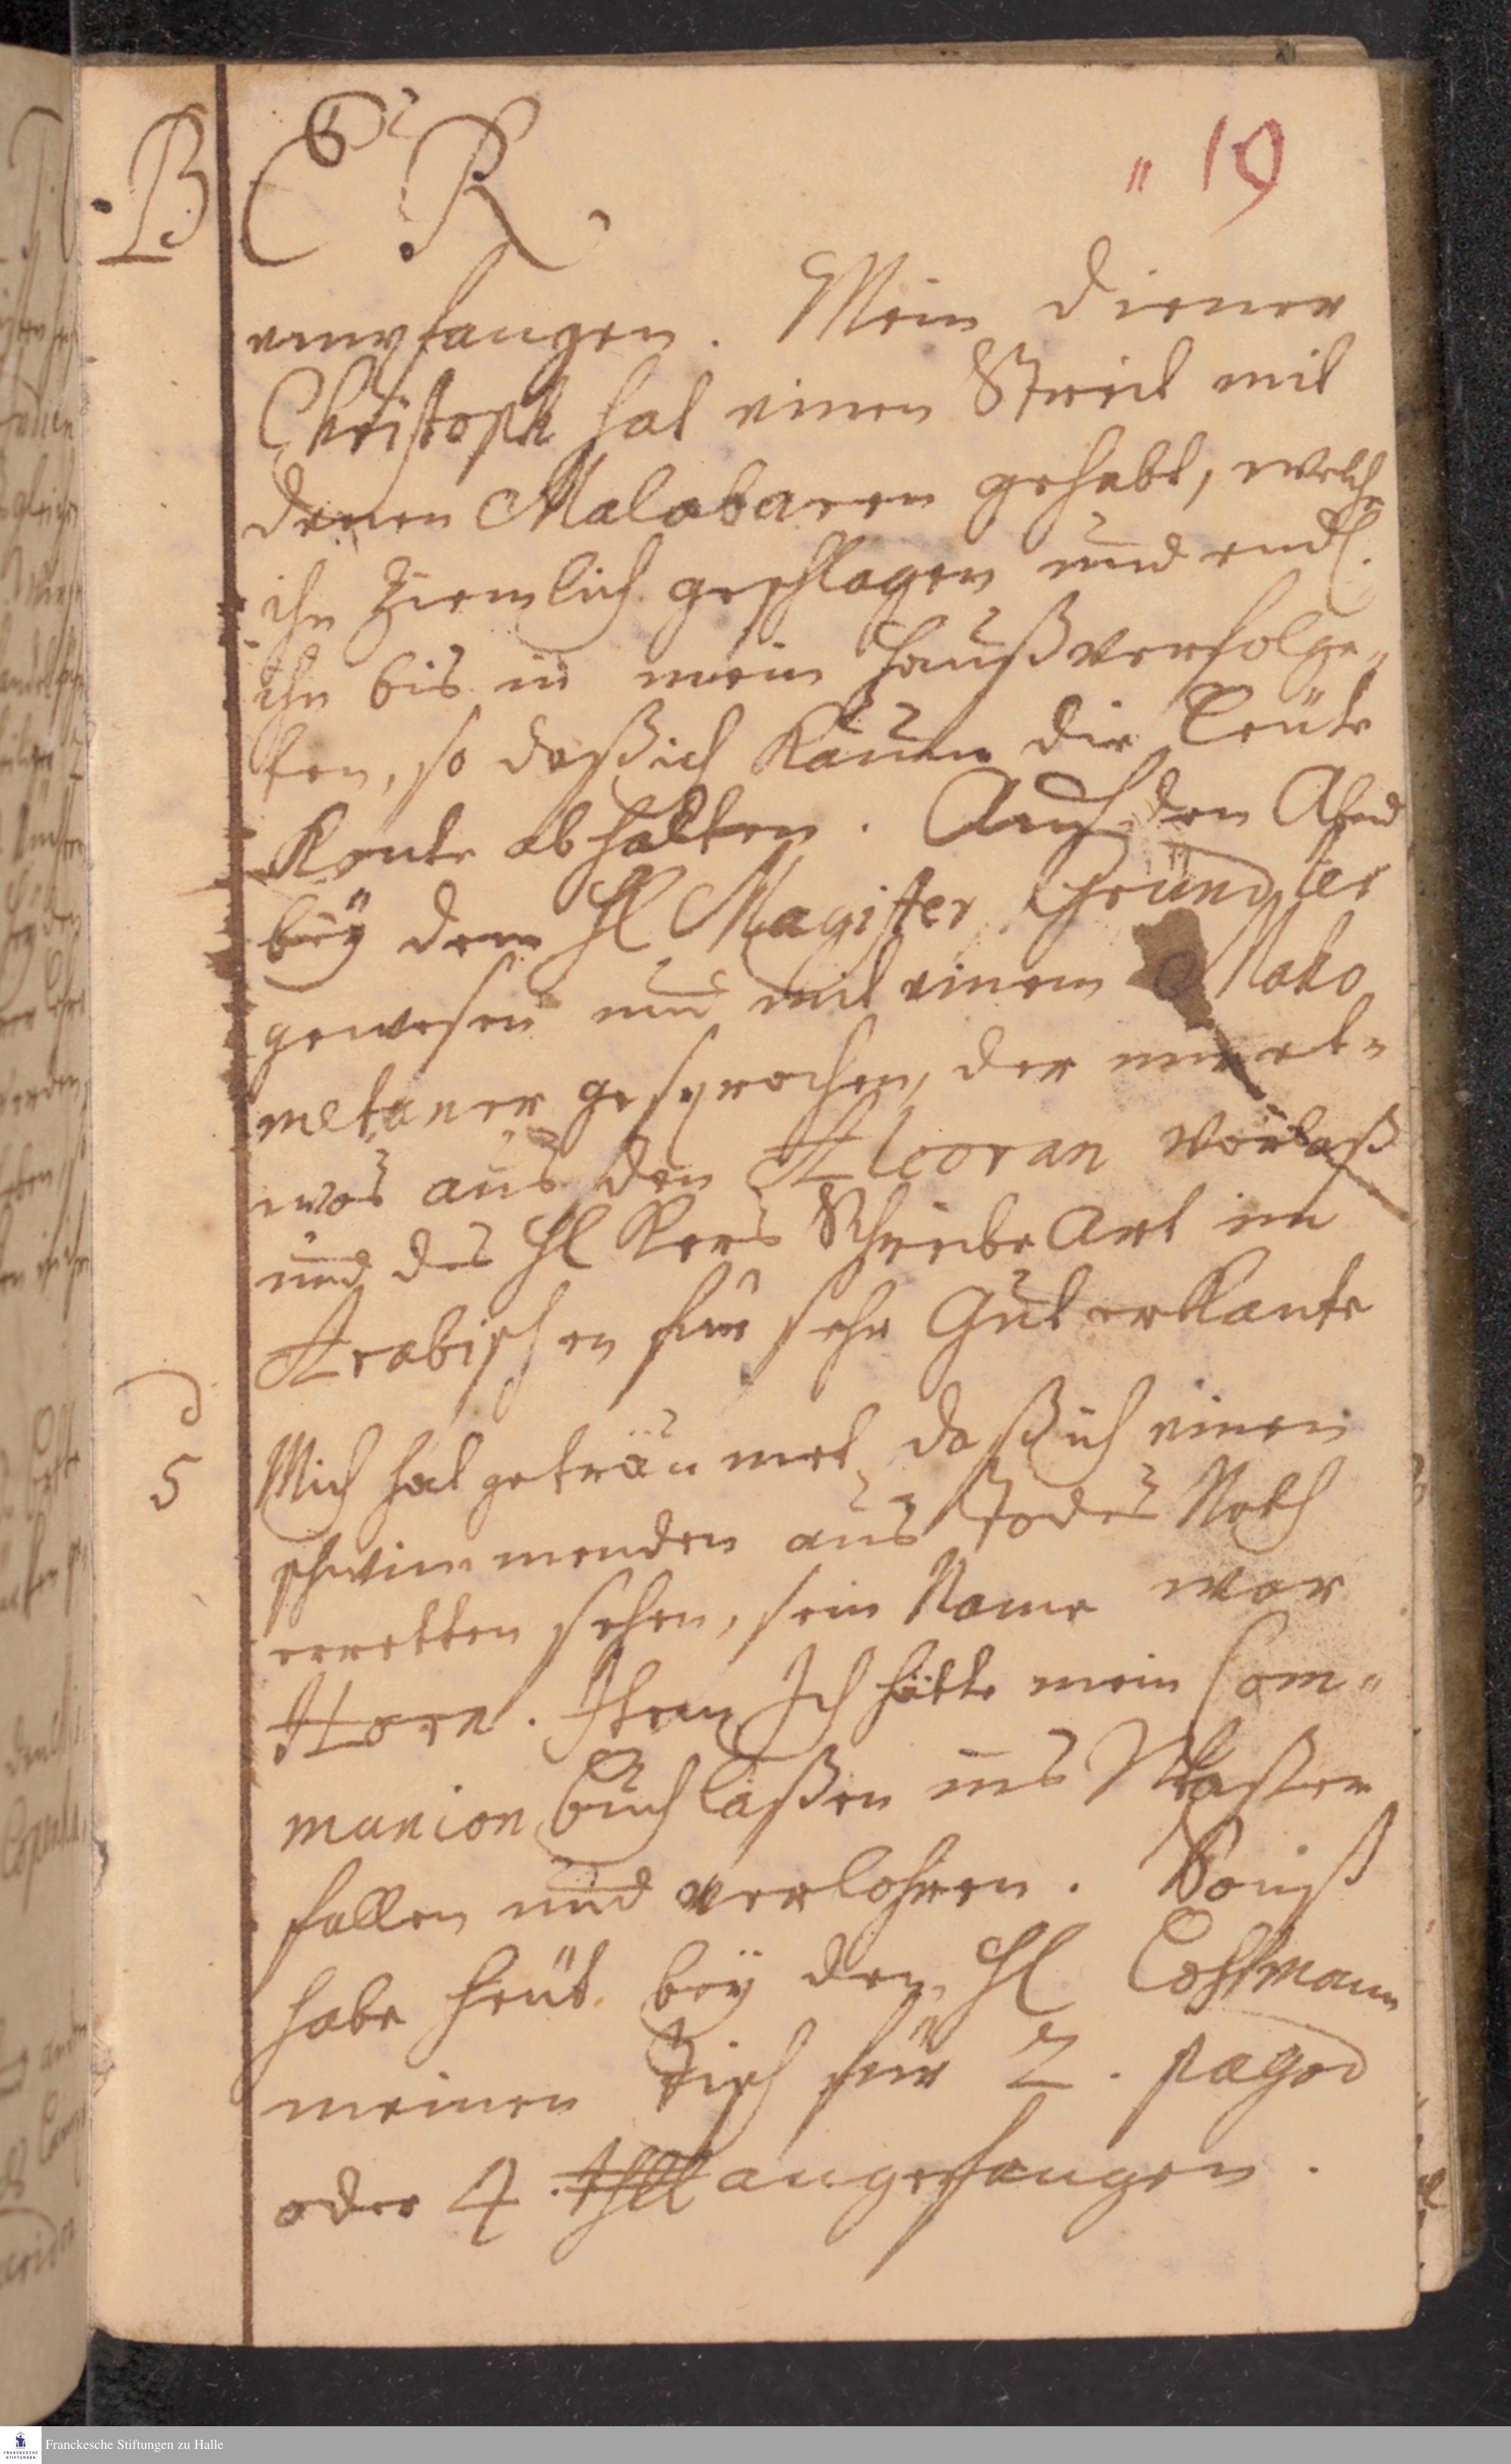 B C R.
" 19
empfangen. Mein Diener
Christoph hat einen Streit mit
denen Malabaren gehabt, welche
ihn ziemlich geschlagen und endl.
ihn bis in mein Hauß verfolge„
ten, so daß ich kaum die Leüte
konte abhalten. Auch den Abend
beÿ dem Hl Magister Gründler
gewesen und mit einem Maho
metaner gesprochen, der mir et„
was aus den Alcoran vorlaß
und des Hl Kers Schreibe Art im
Arabischen für sehr gut erkante
5 Mich hat geträumet, daß ich einen
schwimmenden aus Todes Noth
erretten sehen, sein Name war
Horn. Item Ich hätte mein Com„
munion buch laßen ins Waßer
fallen und verlohren.
habe heüt beÿ den Hl Coffmann
meinen Tisch für 2. pagod
oder 4 thll angefangen.
Franckesche Stiftungen zu Halle